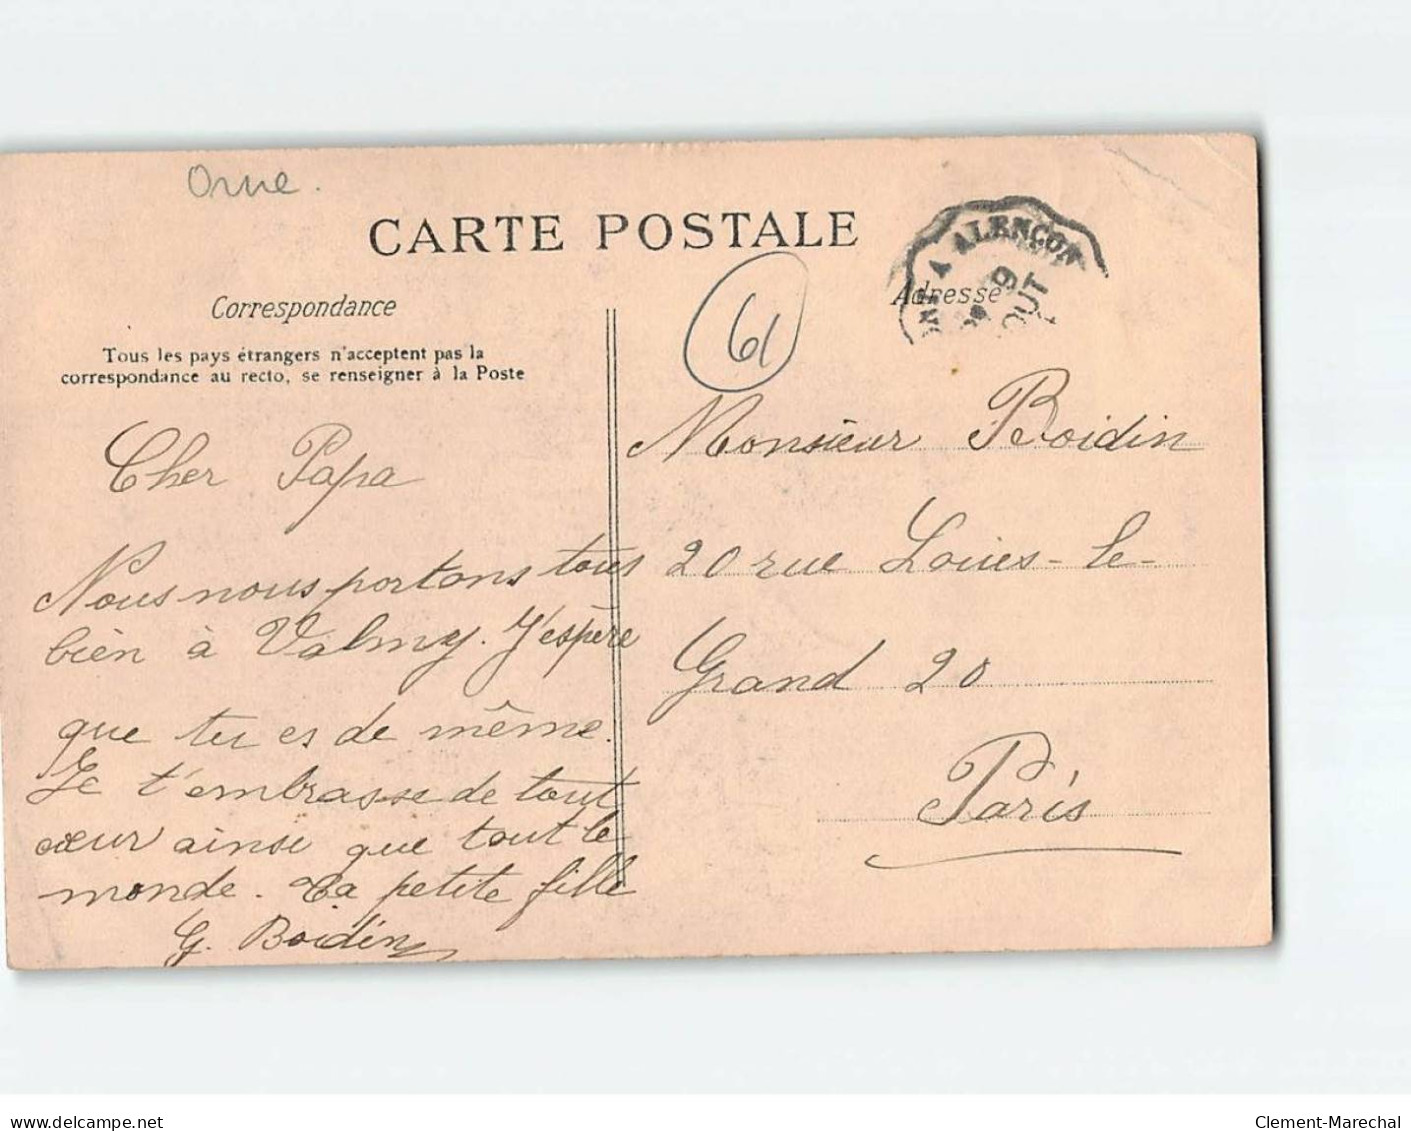 Orne.
CARTE POSTALE
A ALENÇON
9
OUT
Correspondance
Adresse
61
Tous les pays étrangers n'acceptent pas la
correspondance au recto, se renseigner à la Poste
Cher Papa
Nous nous portons tous
bien à Valmy. J'espère
que tu es de même.
Je t'embrasse de tout
cœur ainsi que tout le
monde. Ta petite fille
G. Boidin
Monsieur Boidin
20 rue Louis-le-
Grand 20
Paris
delcampe.net
Clement-Marechal